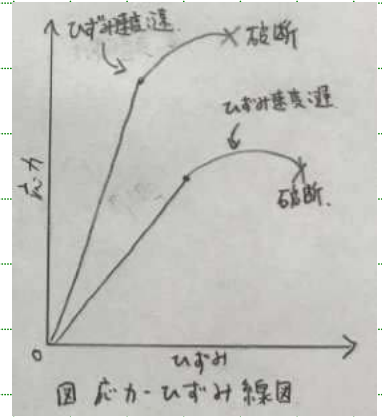 ひずみ速度:速
破断
ひずみ速度:遅
破断.
応力
0
ひずみ
図 応力-ひずみ線図